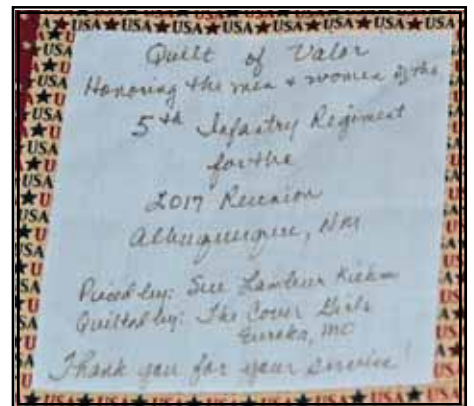 USA★USA★USA★USA★USA★USA★USA
Quilt of Valor
Honoring the men & women of the
5th Infantry Regiment
for the
2017 Reunion
Albuquerque, NM
Pieced by: Sue
Quilted by: The Cover Girls
Eureka, MO
Thank you for your service!